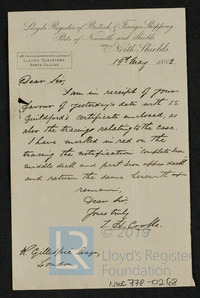 Lloyd's Register of British & Foreign Shipping
Ports of Newcastle and Shields
North Shields
LLOYD'S SURVEYORS
NORTH SHIELDS
19th May 1882
Dear Sir,
I am in receipt of your
favour of yesterday's date with S.S.
Guildford's certificate enclosed, as
also the tracings relating to the case.
I have marked in red on the
tracing the notification
middle deck and part iron upper deck
and return the same herewith
remain,
Dear Sir
Yours truly
Gillespie Esqre
London
© 2019
Lloyd's Register
Foundation